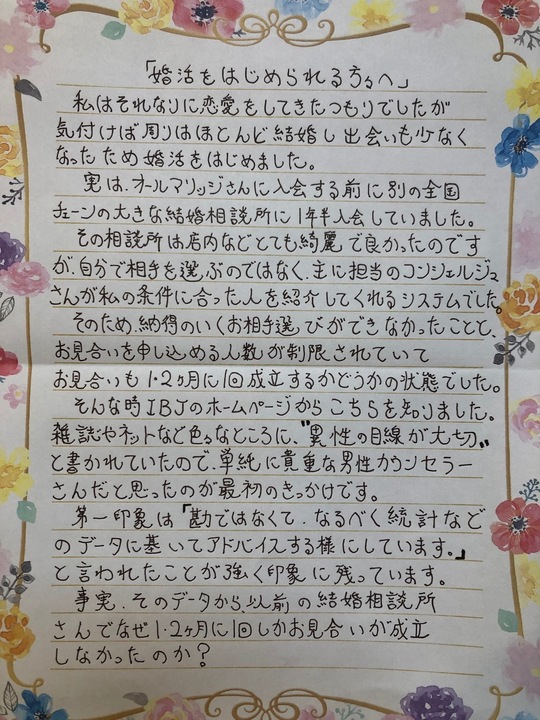 「婚活をはじめられる方々へ」
私はそれなりに恋愛をしてきたつもりでしたが
気付けば周りはほとんど結婚し出会いも少なく
なったため婚活をはじめました。
実は、オールマリッジさんに入会する前に別の全国
チェーンの大きな結婚相談所に1年半入会していました。
その相談所は店内などとても綺麗で良かったのです
が、自分で相手を選ぶのではなく、主に担当のコンシェルジュ
さんが私の条件に合った人を紹介してくれるシステムでした。
そのため、納得のいくお相手選びができなかったことと、
お見合いを申し込める人数が制限されていて
お見合いも1・2ヶ月に1回成立するかどうかの状態でした。
そんな時IBJのホームページからこちらを知りました。
雑誌やネットなど色々なところに、"異性の目線が大切"
と書かれていたので、単純に貴重な男性カウンセラー
さんだと思ったのが最初のきっかけです。
第一印象は「勘ではなくて、なるべく統計など
のデータに基いてアドバイスする様にしています。」
と言われたことが強く印象に残っています。
事実、そのデータから、以前の結婚相談所
さんでなぜ1・2ヶ月に1回しかお見合いが成立
しなかったのか?